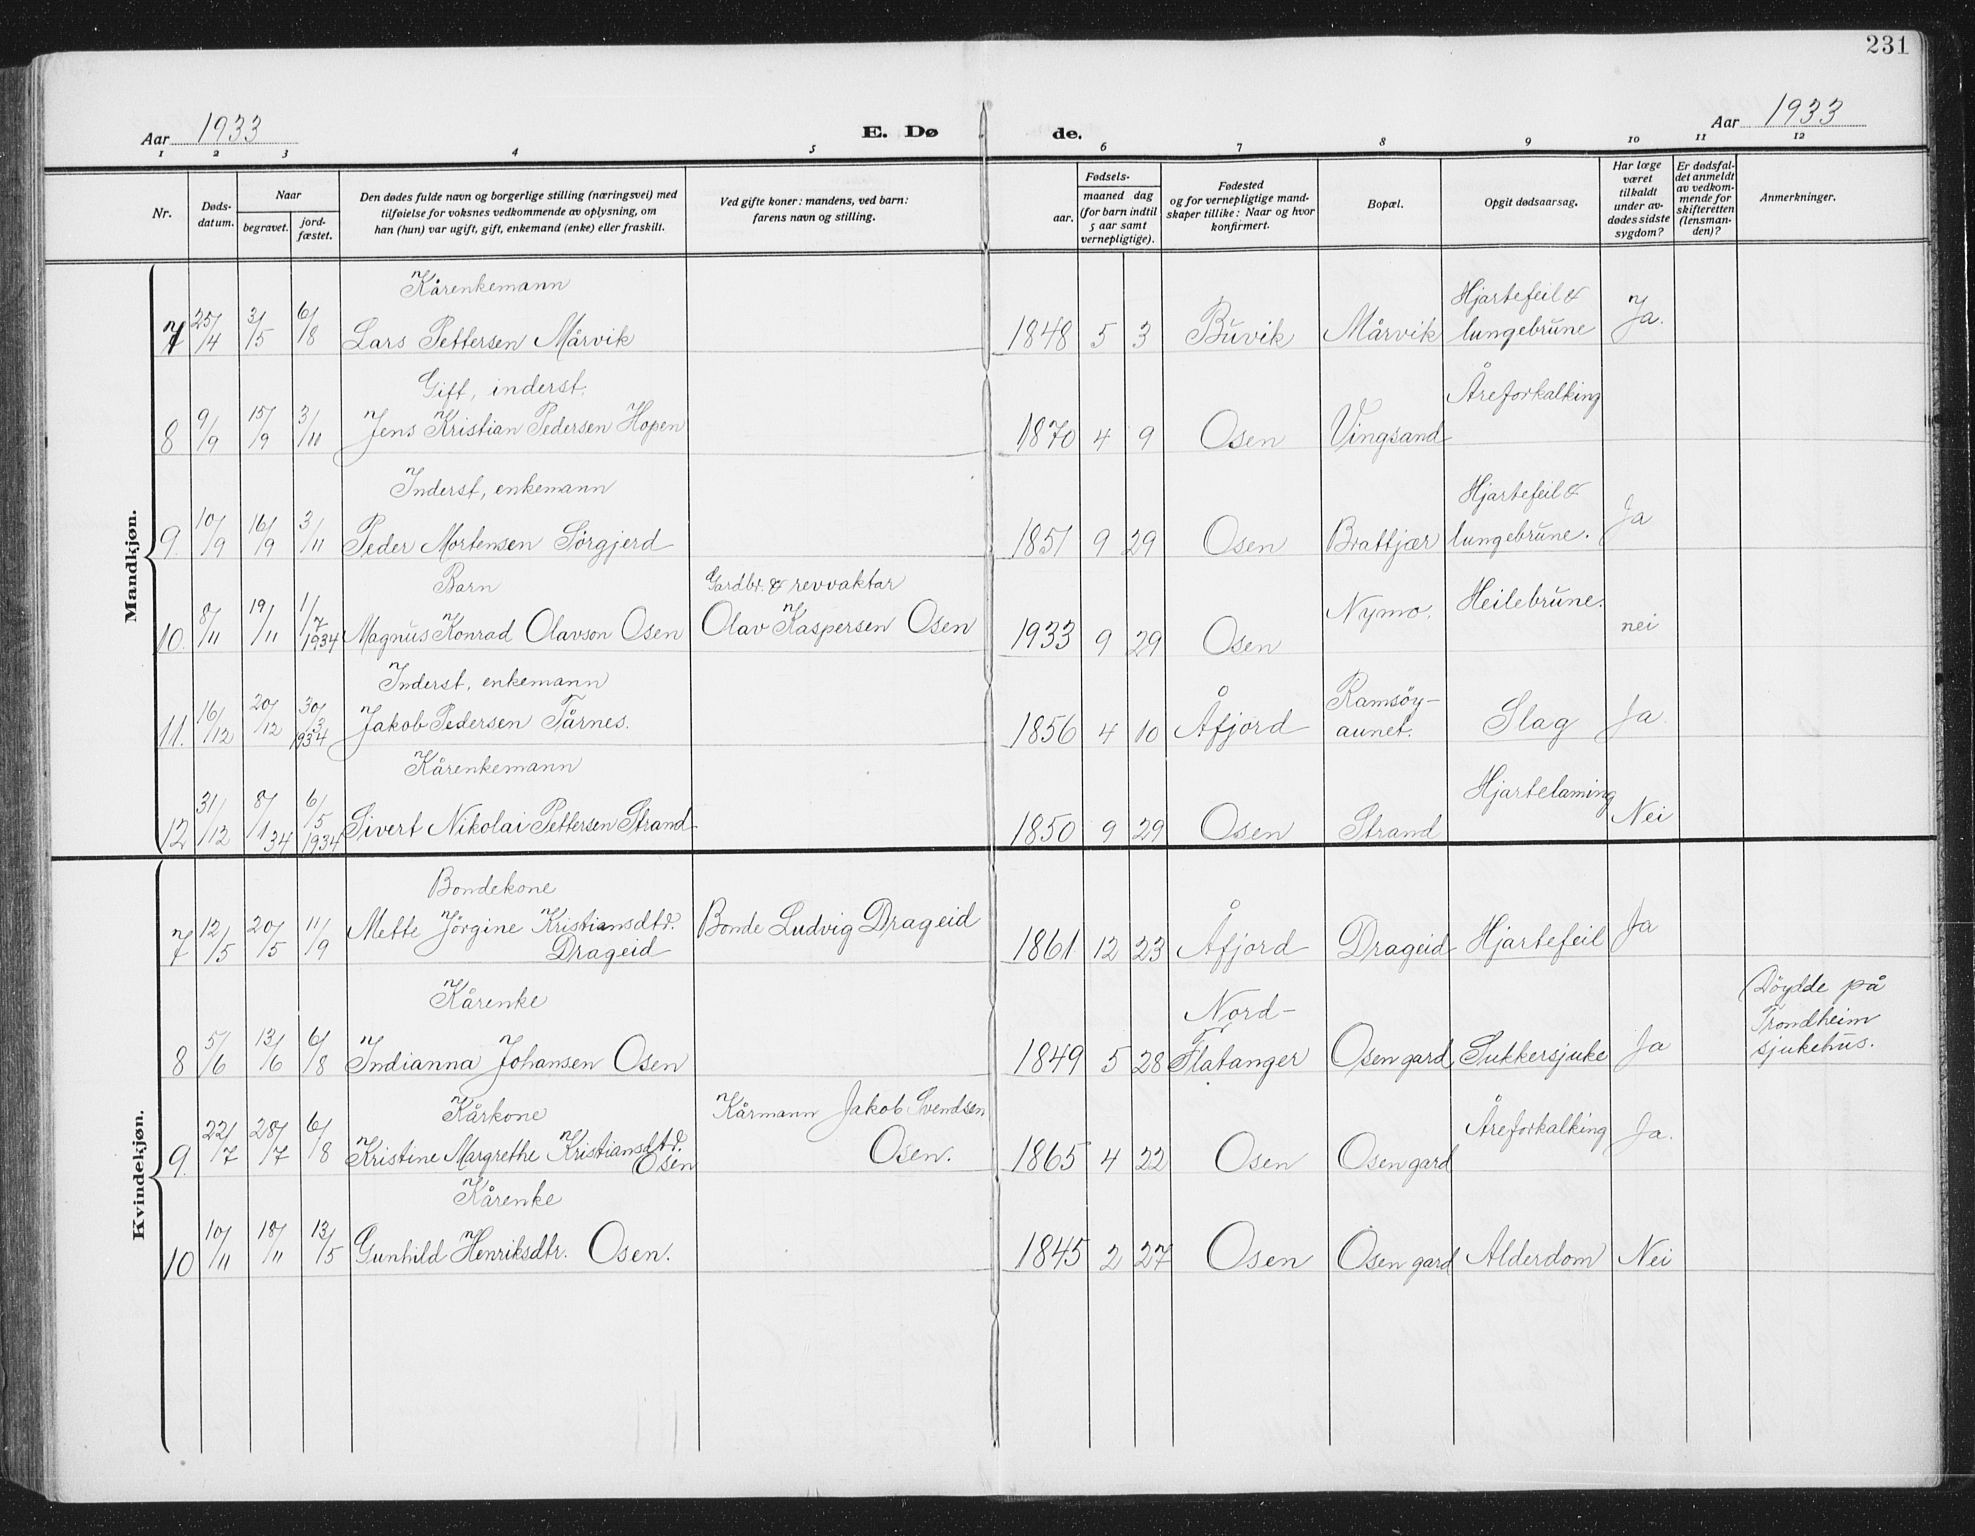 231
Aar 1933 E. Dø de. Aar 1933
1 2 3 4 5 6 7 8 9 10 11 12
Nr. Dødsdatum. Naar begravet. jordfæstet. Den dødes fulde navn og borgerlige stilling (næringsvei) med tilføielse for voksnes vedkommende av oplysning, om han (hun) var ugift, gift, enkemand (enke) eller fraskilt. Ved gifte koner: mandens, ved barn: farens navn og stilling. Fødsels- aar. maaned dag (for barn indtil 5 aar samt vernepligtige). Fødested og for vernepligtige mandskaper tillike: Naar og hvor konfirmert. Bopæl. Opgit dødsaarsag. Har læge været tilkaldt under avdødes sidste sygdom? Er dødsfaldet anmeldt av vedkommende for skifteretten (lensmanden)? Anmerkninger.
Mandkjøn.
Kårenkemann Hjartefeil &
7 25/4 3/5 6/8 Lars Pettersen Mårvik 1848 5 3 Buvik Mårvik lungebrune Ja.
Gift, inderst. Åreforkalking
8 9/9 15/9 3/11 Jens Kristian Pedersen Hopen 1870 4 9 Osen Vingsand
Inderst, enkemann Hjartefeil &
9. 10/9 16/9 3/11 Peder Mortensen Sörgjerd 1851 9 29 Osen Brattjær lungebrune. Ja
Barn Gardbr. & revvaktar
10. 8/11 19/11 1/7 1934 Magnus Konrad Olavson Osen Olav Kaspersen Osen 1933 9 29 Osen Nymo. Heilebrune. nei
Inderst, enkemann Ramsöy-
11. 16/12 20/12 30/3 1934 Jakob Pedersen Tårnes. 1856 4 10 Åfjord aunet. Slag Ja
Kårenkemann Hjartelaming
12 31/12 8/1 34 6/5 1934 Sivert Nikolai Pettersen Strand 1850 9 29 Osen Strand Nei
Kvindekjøn.
Bondekone
7 12/5 20/5 11/9 Mette Jörgine Kristiansdtr. Bonde Ludvig Drageid
Drageid 1861 12 23 Åfjord Drageid Hjartefeil Ja
Kårenke Nord- Döydde på
Trondheim
8 5/6 13/6 6/8 Indianna Johansen Osen 1849 5 28 Flatanger Osen gard Sukkersjuke Ja sjukehus.
Kårkone Kårmann Jakob Svendsen Åreforkalking
9. 22/7 28/7 6/8 Kristine Margrethe Kristiansdtr. Osen Osen. 1865 4 22 Osen Osen gard Ja.
Kårenke
10 10/11 18/11 13/5 Gunhild Henriksdtr. Osen. 1845 2 27 Osen Osen gard Alderdom Nei